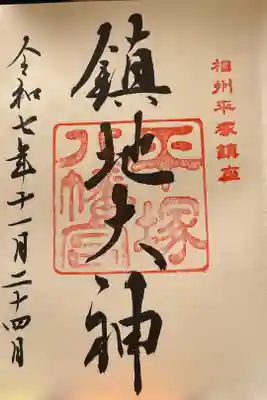 相州平塚鎮座
鎮地大神
平塚
八幡宮
令和七年十一月二十四日